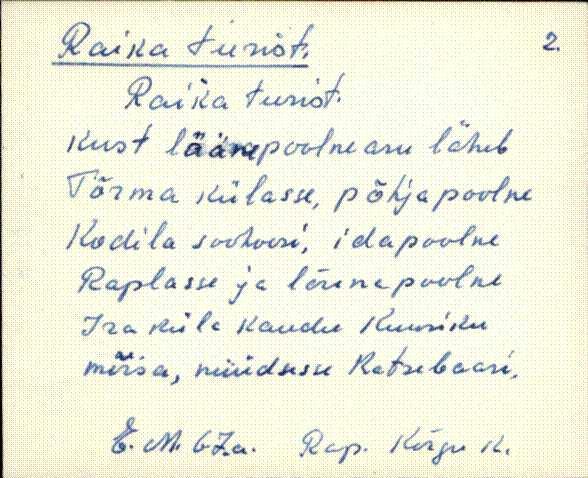 Raika turist. 2.
Raika turist.
kust läänepoolne aru läheb
Tõrma külasse, põhjapoolne
Kodila soohoori, idapoolne
Raplasse ja lõunapoolne
Ira küla kaudu Kuusiku
mõisa, nüüdsesse Katsebaasi.
E. M. 67.a. Rap. Kõrgu k.